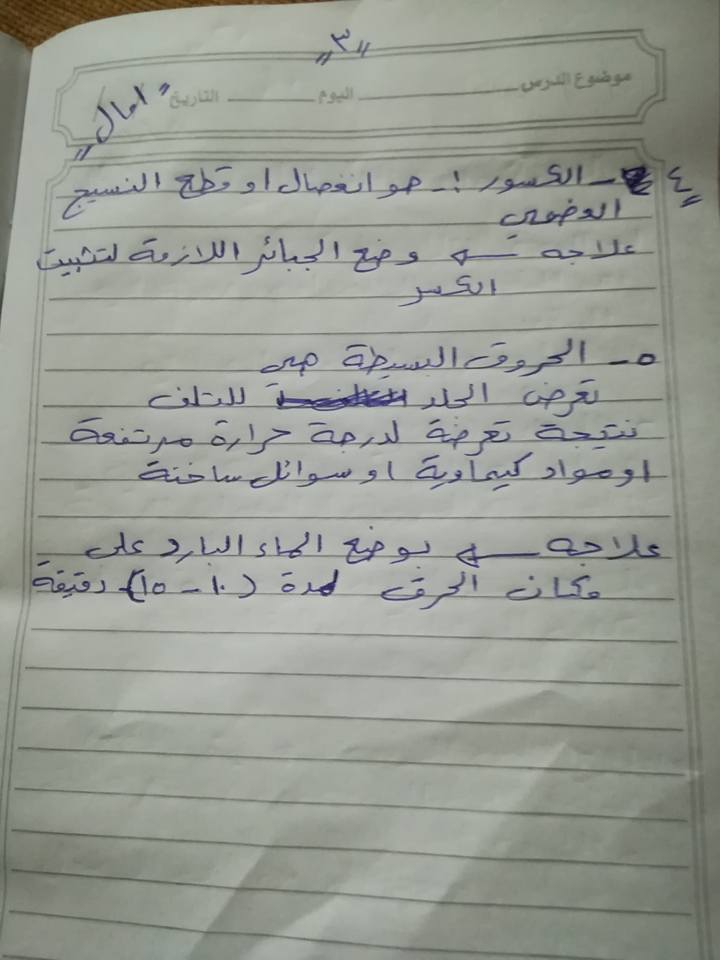 "٣"
موضوع الدرس ______ اليوم ______ التاريخ
"امال"
"٤ - الكسور :- هو انفصال او قطع النسيج
العضمي
علاجه ← وضع الجبائر اللازمة لتثبيت
الكسر
٥- الحروق البسيطة هي
تعرض الجلد للتلف
نتيجة تعرضة لدرجة حرارة مرتفعة
او مواد كيماوية او سوائل ساخنة
علاجه ← بوضع الماء البارد على
مكان الحرق لمدة (١٠ - ١٥) دقيقة